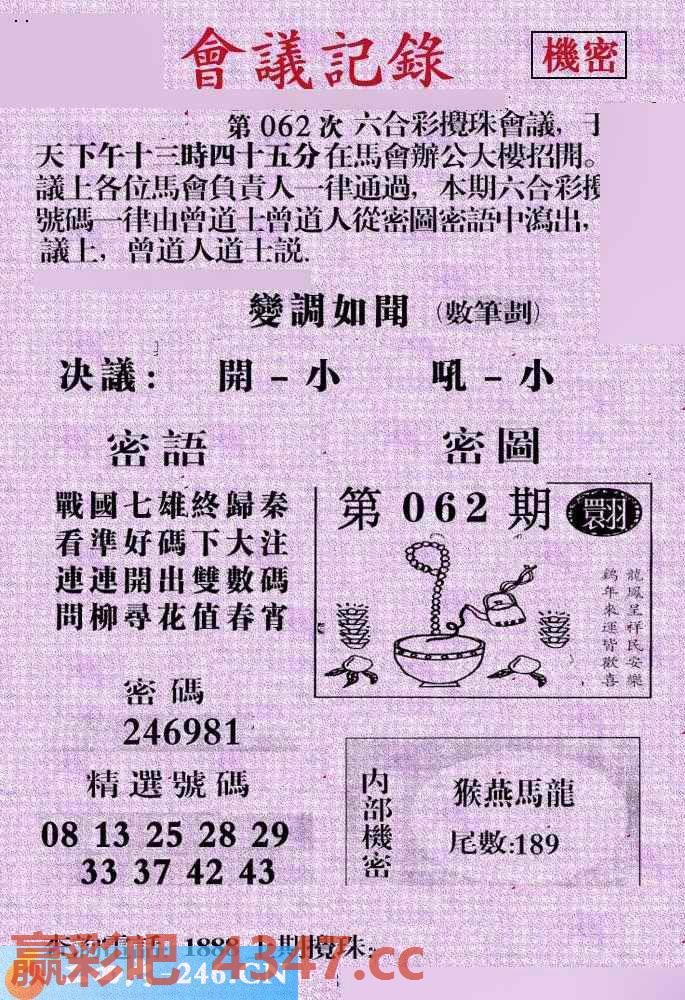 會議記錄
機密
第062次 六合彩攪珠會議，于
天下午十三時四十五分在馬會辦公大樓招開。
議上各位馬會負責人一律通過，本期六合彩攪
號碼一律由曾道士曾道人從密圖密語中瀉出，
議上，曾道人道士説.
變調如聞（數筆劃）
决議： 開－小 吼－小
密語
戰國七雄終歸秦
看準好碼下大注
連連開出雙數碼
問柳尋花值春宵
密圖
第062期
翾
龍鳳呈祥民安樂
鷄年來運皆歡喜
密碼
246981
精選號碼
08 13 25 28 29
33 37 42 43
内部機密
猴燕馬龍
尾數:189
1888 上期攪珠:
赢彩吧 4347.cc
246.CN